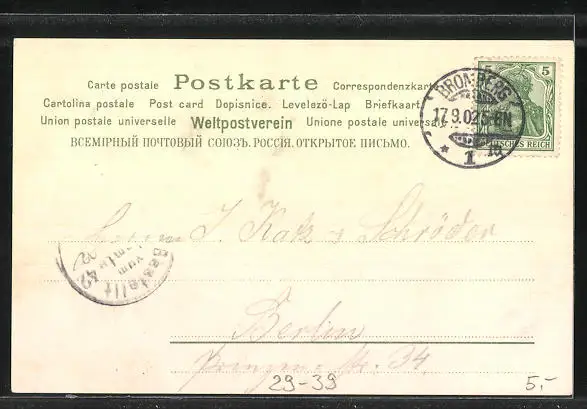 Carte postale Postkarte Correspondenzkarte
Cartolina postale Post card Dopisnice. Levelező-Lap Briefkaart
Union postale universelle Weltpostverein Unione postale universale
ВСЕМІРНЫЙ ПОЧТОВЫЙ СОЮЗЪ. РОССІЯ. ОТКРЫТОЕ ПИСЬМО.
5 5
DEUTSCHES REICH
BROMBERG
17.9.02.5-6N
* 1
Bestellt
vom
Herrn J. Katz & Schröder
Berlin
Str. 34
29-39
5,-